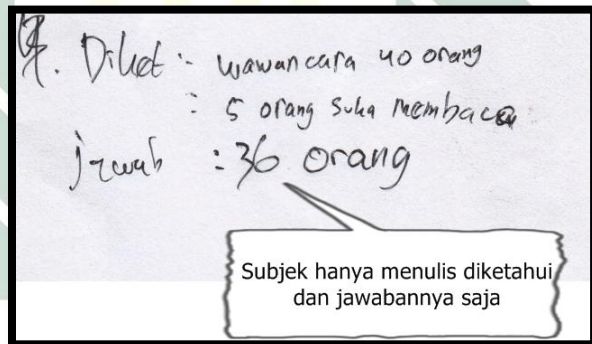 4. Diket :- wawancara 40 orang
: 5 orang suka membaca
jawab : 36 orang
Subjek hanya menulis diketahui
dan jawabannya saja